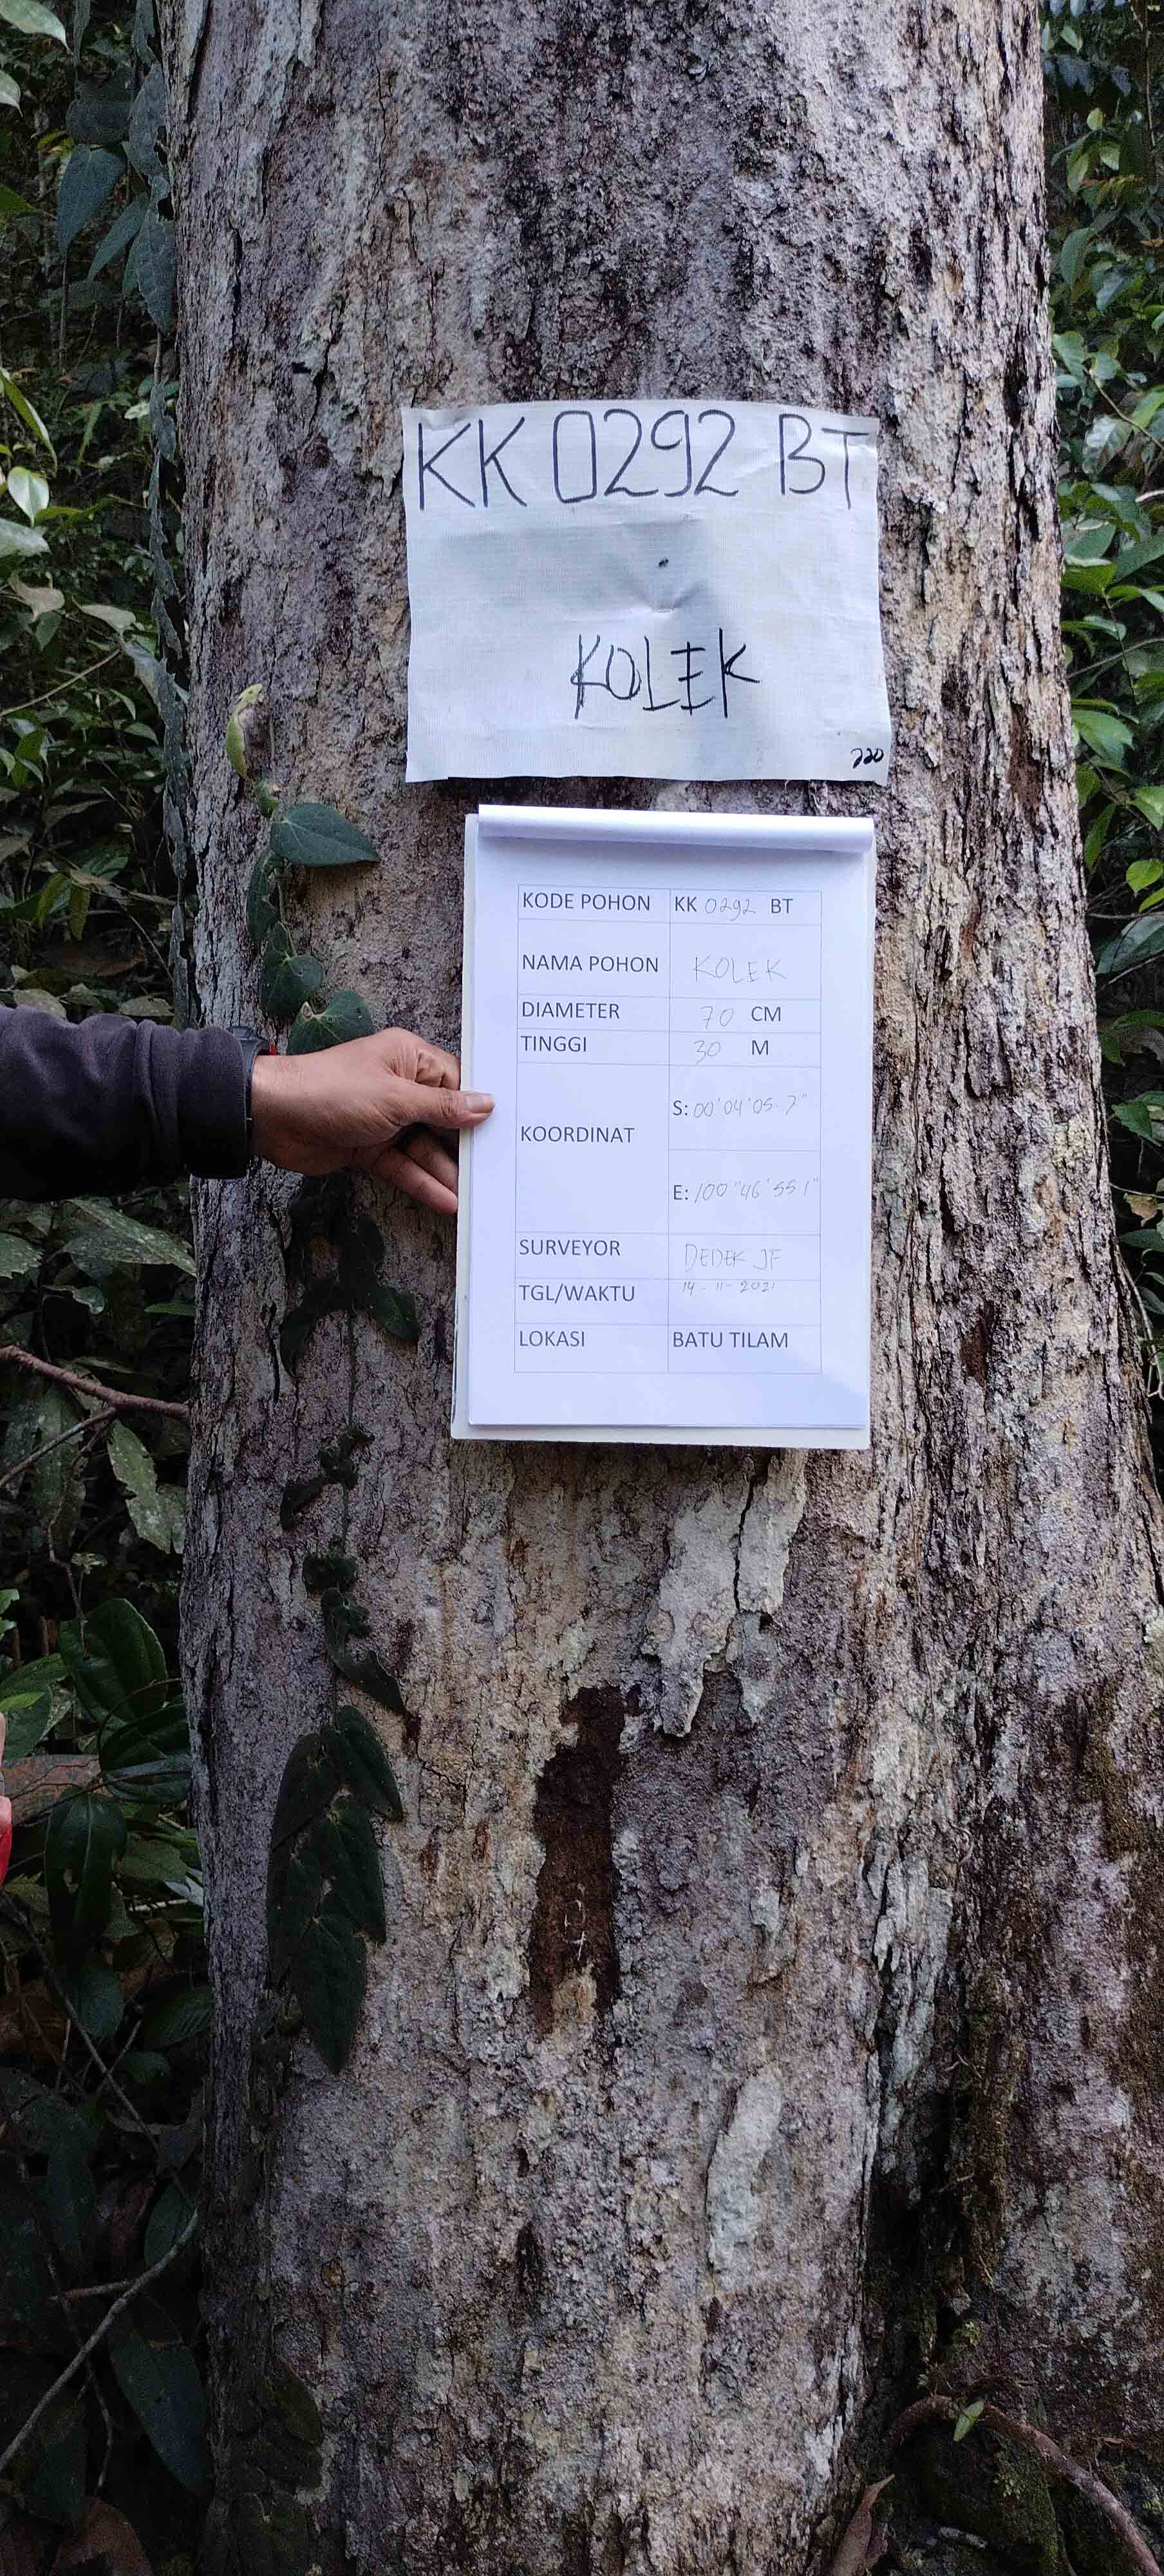 KK 0292 BT
KOLEK
220
KODE POHON KK 0292 BT
NAMA POHON KOLEK
DIAMETER 70 CM
TINGGI 30 M
KOORDINAT
S: 00'04'05.7"
E: 100"46'55 1"
SURVEYOR DEDEK JF
TGL/WAKTU 14-11-2021
LOKASI BATU TILAM